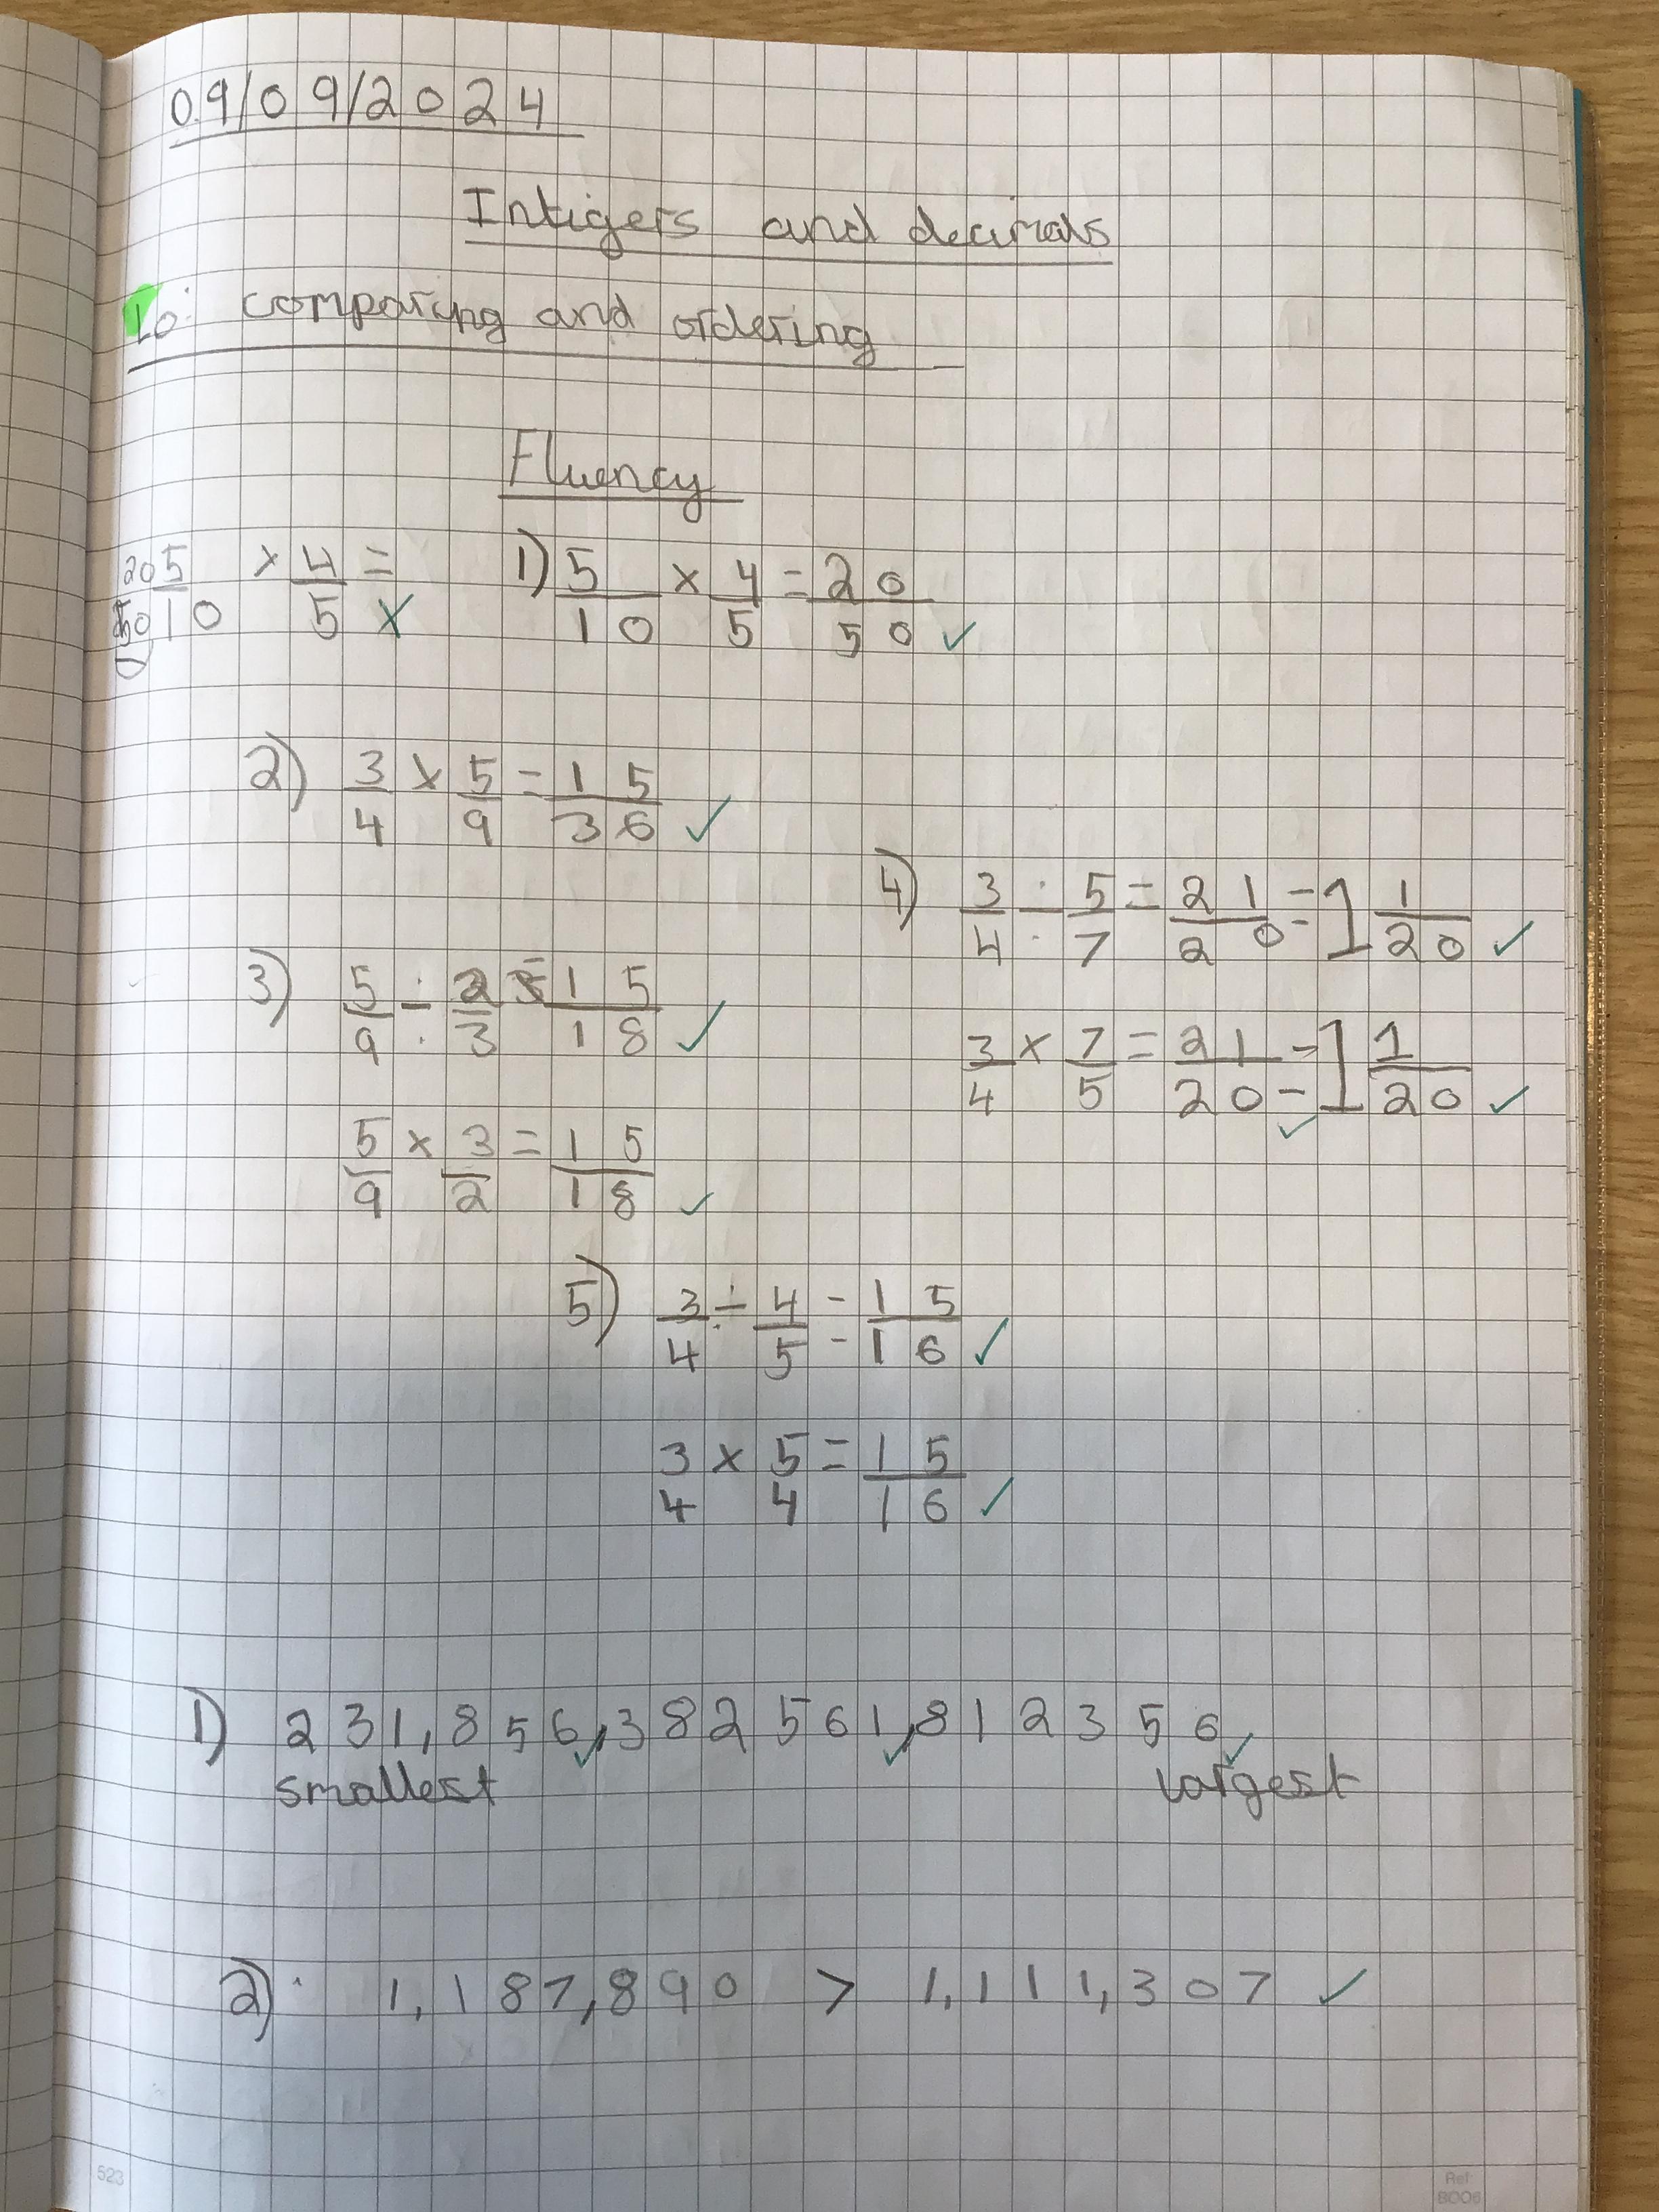 09/09/2024
Intigers and decimals
Lo: comparing and ordering
Fluency
5/10 × 4/5 =
1) 5/10 × 4/5 = 20/50
2) 3/4 × 5/9 = 15/36
4) 3/4 ÷ 5/7 = 21/20 = 1 1/20
3) 5/9 ÷ 2/3 = 15/18
3/4 × 7/5 = 21/20 = 1 1/20
5/9 × 3/2 = 15/18
5) 3/4 ÷ 4/5 = 15/16
3/4 × 5/4 = 15/16
1) 231,856, 382561, 812356
smallest largest
2) 1,187,890 > 1,111,307
523
Ref
BOO6